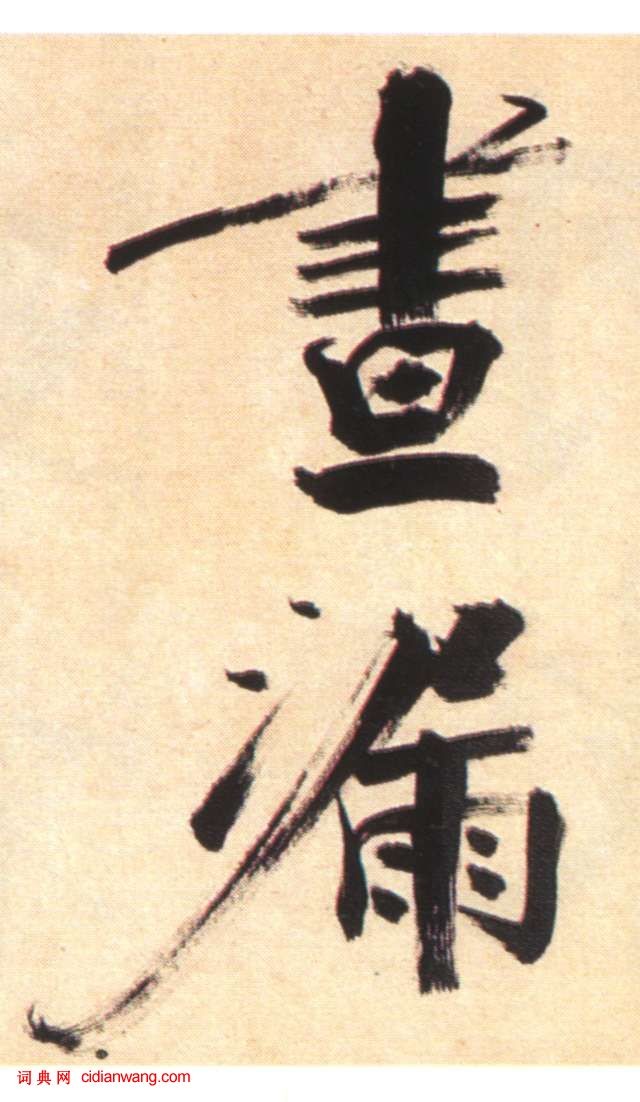 晝
漏
词典网 cidianwang.com